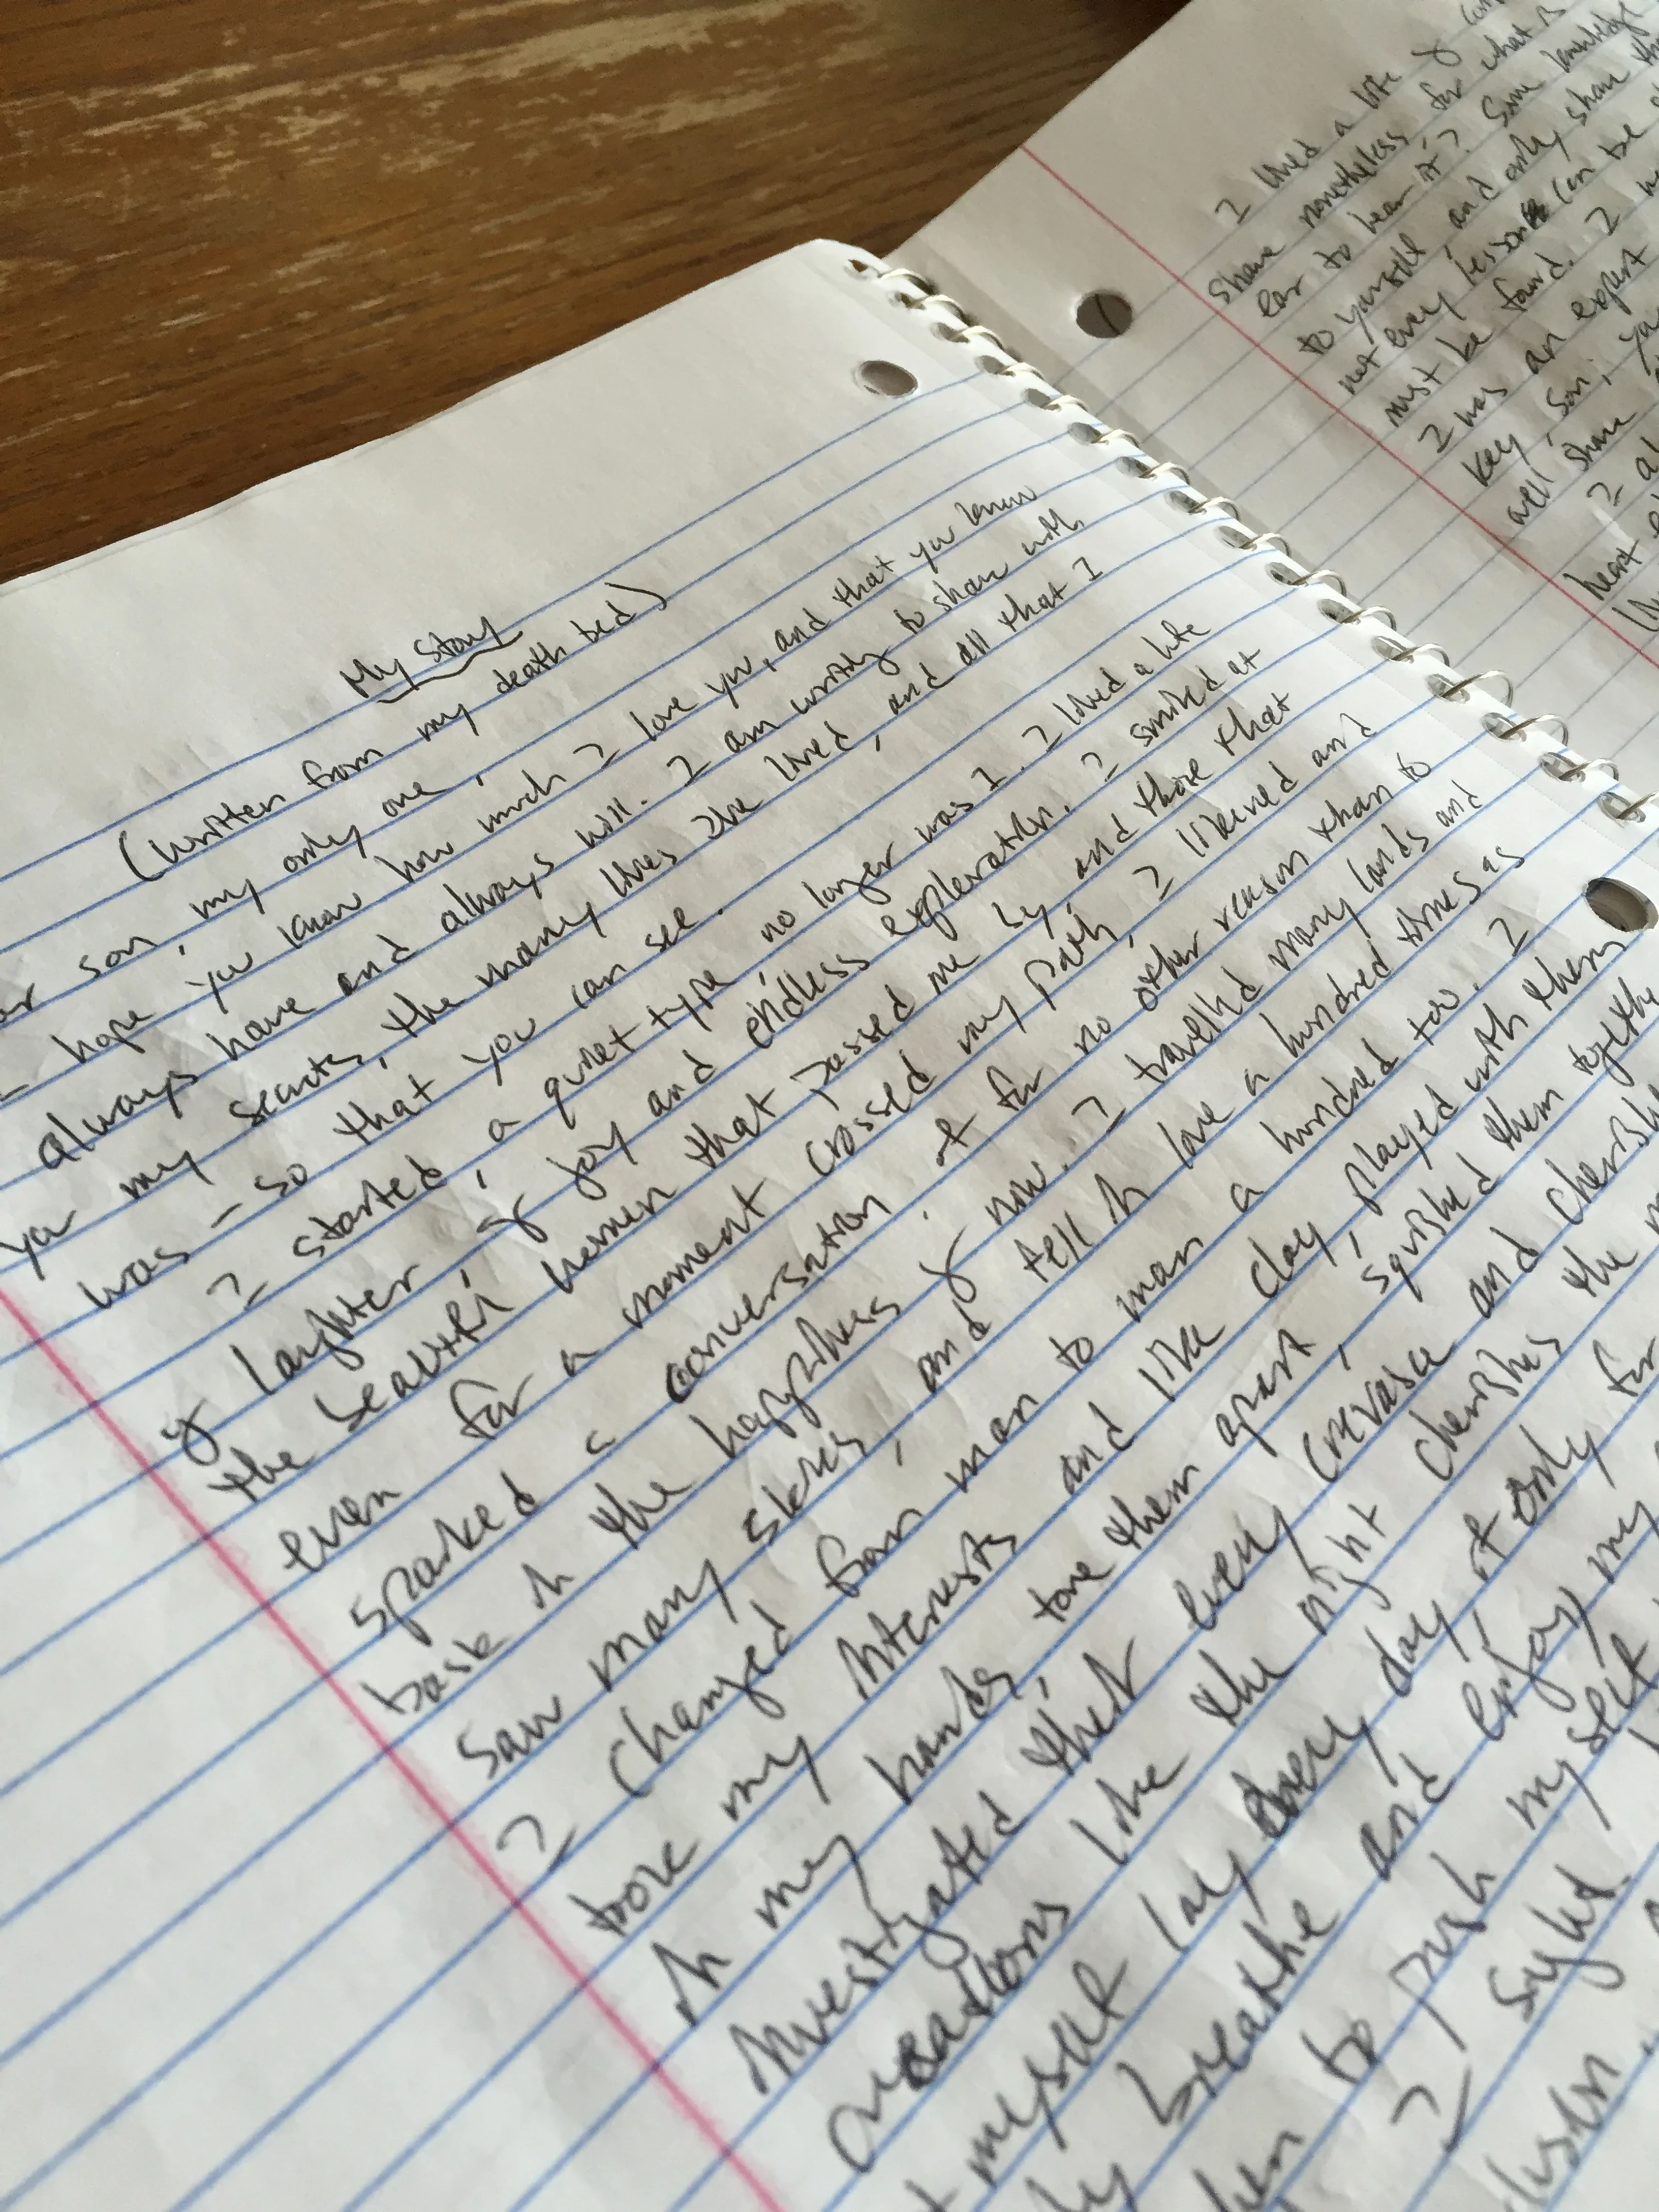 My Story
(written from my death bed)
son, my only one,
hope you know how much I love you, and that you know
always have and always will. I am writing to share with
you my secrets, the many lives I've lived, and all that I
was - so that you can see.
I started, a quiet type, no longer was I. I lived a life
of laughter, of joy and endless exploration. I smiled at
the beautiful women that passed me by, and those that
even for a moment crossed my path, I likened and
sparked a conversation if for no other reason than to
bask in the happiness of now. I travelled many lands and
saw many skies, and fell in love a hundred times as
I changed from man to man a hundred too. I
took my interests and like clay, played with them
in my hands, tore them apart, squished them
investigated their every crevase and
creations like the night cherishes the
myself lay every day, if only for
breathe and enjoy my
to push my self
I sight.
I lived a life of
share nonetheless for what is
ear to hear it? Some knowledge
to yourself and only share
not every lesson can be
must be found. I
I was an expert
key, son, you
well share
I
heart